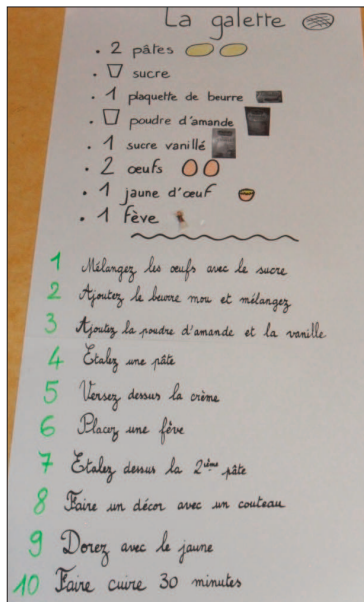 La galette
• 2 pâtes
• sucre
• 1 plaquette de beurre
• poudre d'amande
• 1 sucre vanillé
• 2 œufs
• 1 jaune d'œuf
• 1 fève
1 Mélangez les œufs avec le sucre
2 Ajoutez le beurre mou et mélangez
3 Ajoutez la poudre d'amande et la vanille
4 Etalez une pâte
5 Versez dessus la crème
6 Placez une fève
7 Etalez dessus la 2ième pâte
8 Faire un décor avec un couteau
9 Dorez avec le jaune
10 Faire cuire 30 minutes